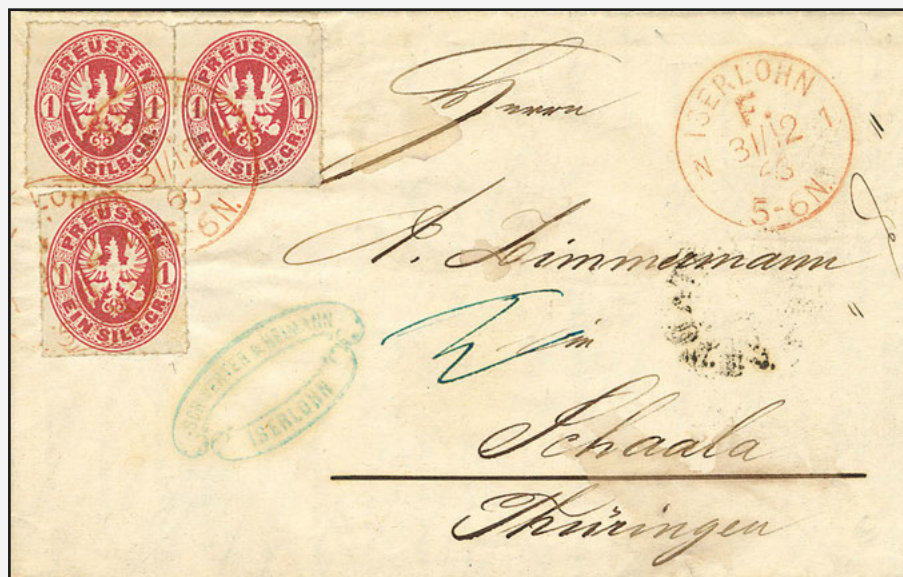 PREUSSEN
1 1
EIN SILB. GR.
PREUSSEN
1 1
EIN SILB. GR.
PREUSSEN
1 1
EIN SILB. GR.
31/12
65
5-6N.
ISERLOHN
F.
31/12
65
N 1
5-6N.
Herrn
A. Zimmermann
in
Schaala
Thüringen
& HEIMANN
ISERLOHN